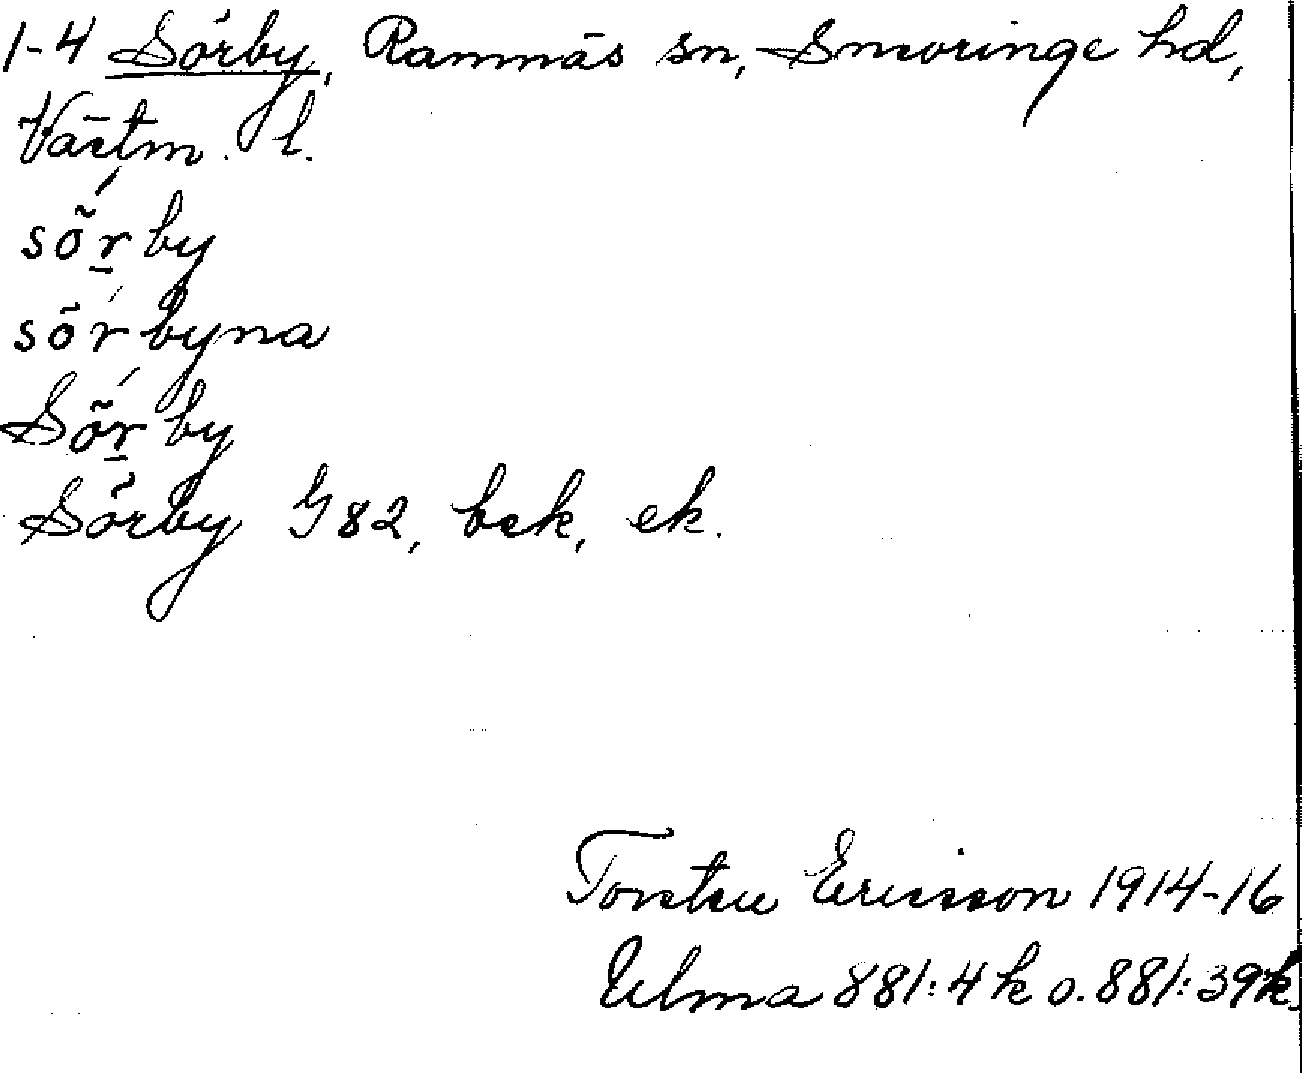 1-4 Sörby, Ramnäs sn, Snevringe hd,
Västm. l.
sö̃r̲by
sörbyna
Sö̃r̲by
Sörby G82, bek, ek.
Torsten Ericsson 1914-16
Ulma 881:4k o. 881:39k